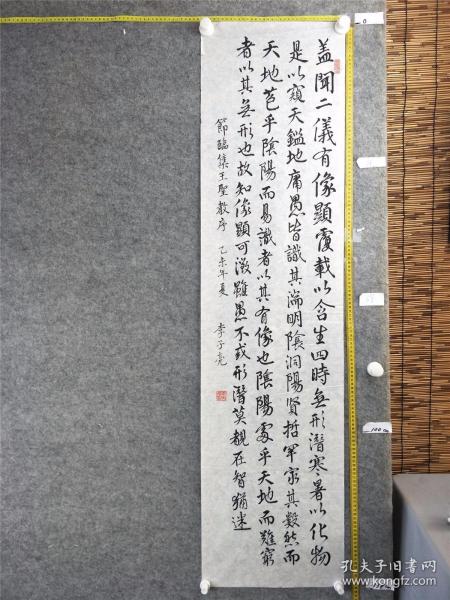 盖聞二儀有像顯覆載以含生四時無形潛寒暑以化物
是以窺天鑑地庸愚皆識其端明陰洞陽賢哲罕窮其數然而
天地苞乎陰陽而易識者以其有像也陰陽處乎天地而難窮
者以其無形也故知像顯可徵雖愚不惑形潛莫覩在智猶迷
節臨集王聖教序 乙未年夏 李子亮
0
100 cm
孔夫子旧书网